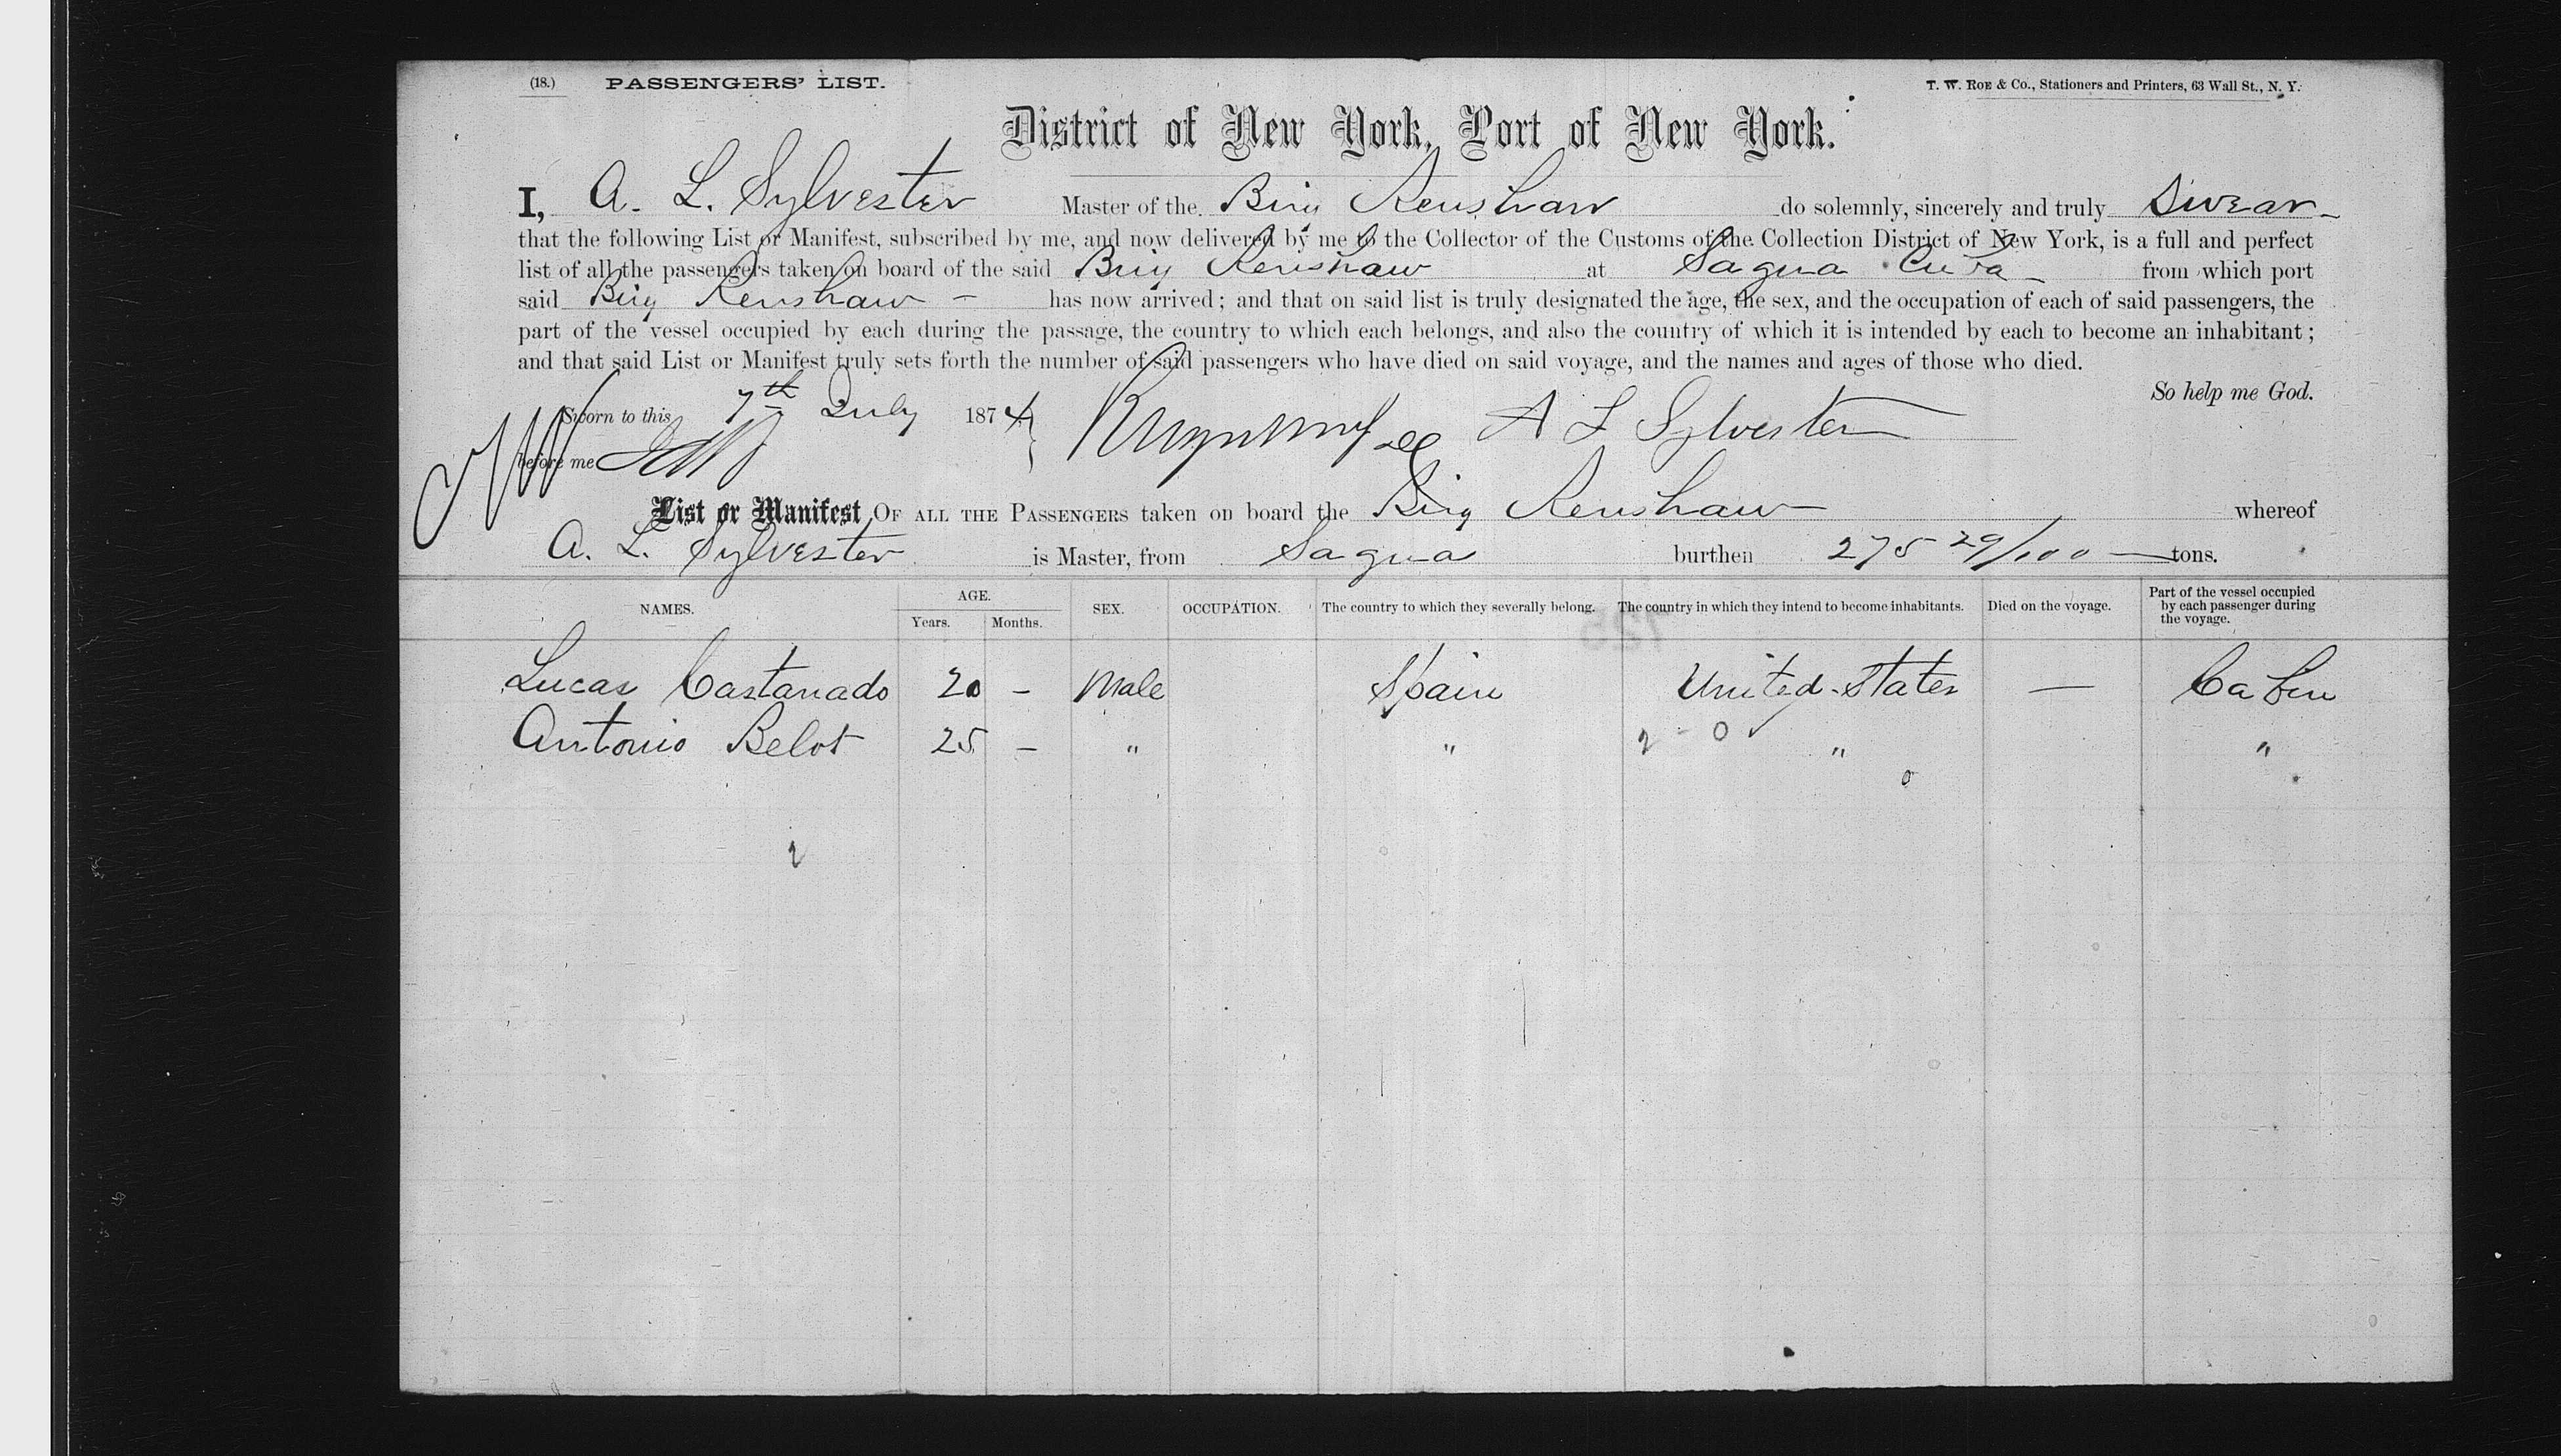 (18.) PASSENGERS' LIST. T. W. ROE & Co., Stationers and Printers, 63 Wall St., N. Y.
District of New York, Port of New York.
I, A. L. Sylvester Master of the Brig Renshaw do solemnly, sincerely and truly Swear
that the following List or Manifest, subscribed by me, and now delivered by me to the Collector of the Customs of the Collection District of New York, is a full and perfect
list of all the passengers taken on board of the said Brig Renshaw at Sagua Cuba from which port
said Brig Renshaw - has now arrived; and that on said list is truly designated the age, the sex, and the occupation of each of said passengers, the
part of the vessel occupied by each during the passage, the country to which each belongs, and also the country of which it is intended by each to become an inhabitant;
and that said List or Manifest truly sets forth the number of said passengers who have died on said voyage, and the names and ages of those who died.
So help me God.
Sworn to this 7th July 1874 A L Sylvester
before me
List or Manifest OF ALL THE PASSENGERS taken on board the Brig Renshaw whereof
A. L. Sylvester is Master, from Sagua burthen 275 29/100 tons.
NAMES. AGE. Years. Months. SEX. OCCUPATION. The country to which they severally belong. The country in which they intend to become inhabitants. Died on the voyage. Part of the vessel occupied by each passenger during the voyage.
Lucas Castanado 20 - Male Spain United States — Cabin
Antonio Belot 25 - " " " "
2 - 0
0
2